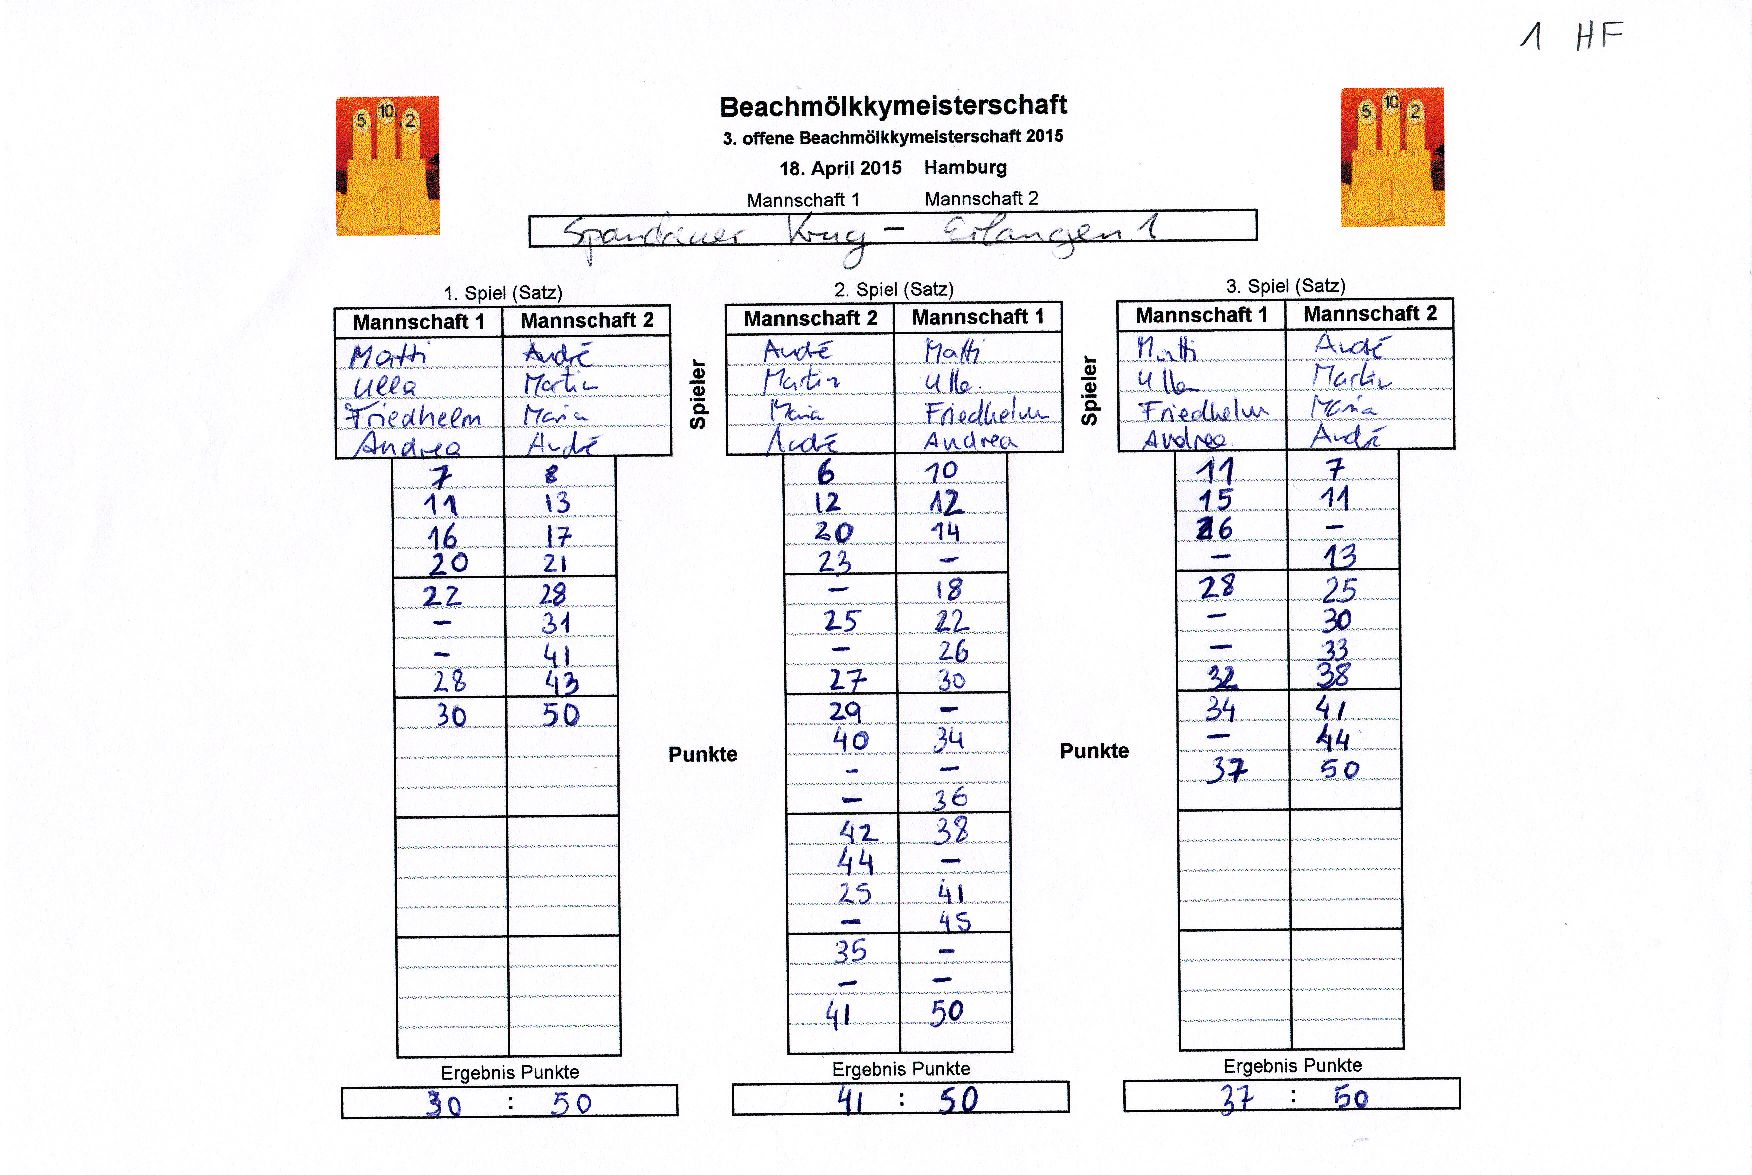 1 HF
5 10 2
5 10 2
Beachmölkkymeisterschaft
3. offene Beachmölkkymeisterschaft 2015
18. April 2015 Hamburg
Mannschaft 1 Mannschaft 2
Spandauer Krug - Erlangen 1
1. Spiel (Satz)
Mannschaft 1 Mannschaft 2
Matti André
Ulla Martin
Friedhelm Maria
Andrea André
7 8
11 13
16 17
20 21
22 28
- 31
- 41
28 43
30 50
Ergebnis Punkte
30 : 50
Spieler
Punkte
2. Spiel (Satz)
Mannschaft 2 Mannschaft 1
André Matti
Martin Ulla
Maria Friedhelm
André Andrea
6 10
12 12
20 14
23 -
- 18
25 22
- 26
27 30
29 -
40 34
- -
- 36
42 38
44 -
25 41
- 45
35 -
- -
41 50
Ergebnis Punkte
41 : 50
Spieler
Punkte
3. Spiel (Satz)
Mannschaft 1 Mannschaft 2
Matti André
Ulla Martin
Friedhelm Maria
Andrea André
11 7
15 11
26 -
- 13
28 25
- 30
- 33
32 38
34 41
- 44
37 50
Ergebnis Punkte
37 : 50